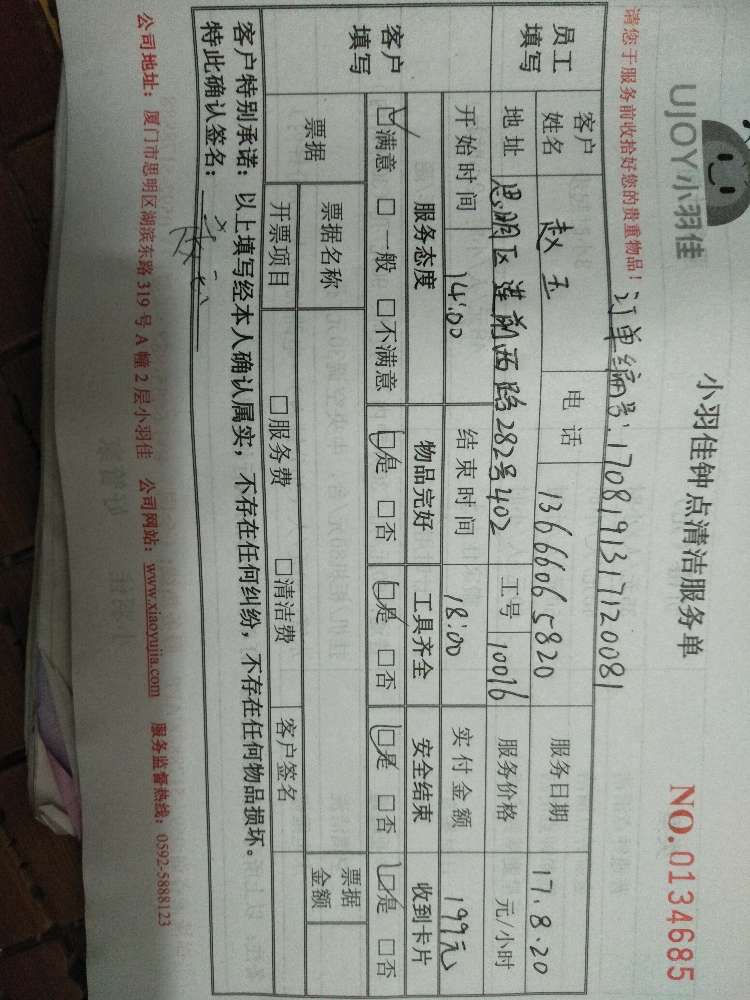 UJOY小羽佳
小羽佳钟点清洁服务单
NO.0134685
请您于服务前收拾好您的贵重物品!
订单编号:1708191317120081
员工填写
客户姓名 赵玉 电话 13666065820 服务日期 17.8.20
地址 思明区莲前西路282号402 工号 10016 服务价格 元/小时
开始时间 14:00 结束时间 18:00 实付金额 199元
客户填写
服务态度 物品完好 工具齐全 安全结束 收到卡片
☑满意 □一般 □不满意 ☑是 □否 ☑是 □否 ☑是 □否 ☑是 □否
票据 票据名称 票据金额
开票项目 □服务费 □清洁费 客户签名
客户特别承诺:以上填写经本人确认属实,不存在任何纠纷,不存在任何物品损坏。
特此确认签名:
公司地址:厦门市思明区湖滨东路319号A幢2层小羽佳 公司网站:www.xiaoyujia.com 服务监督热线:0592-5888123